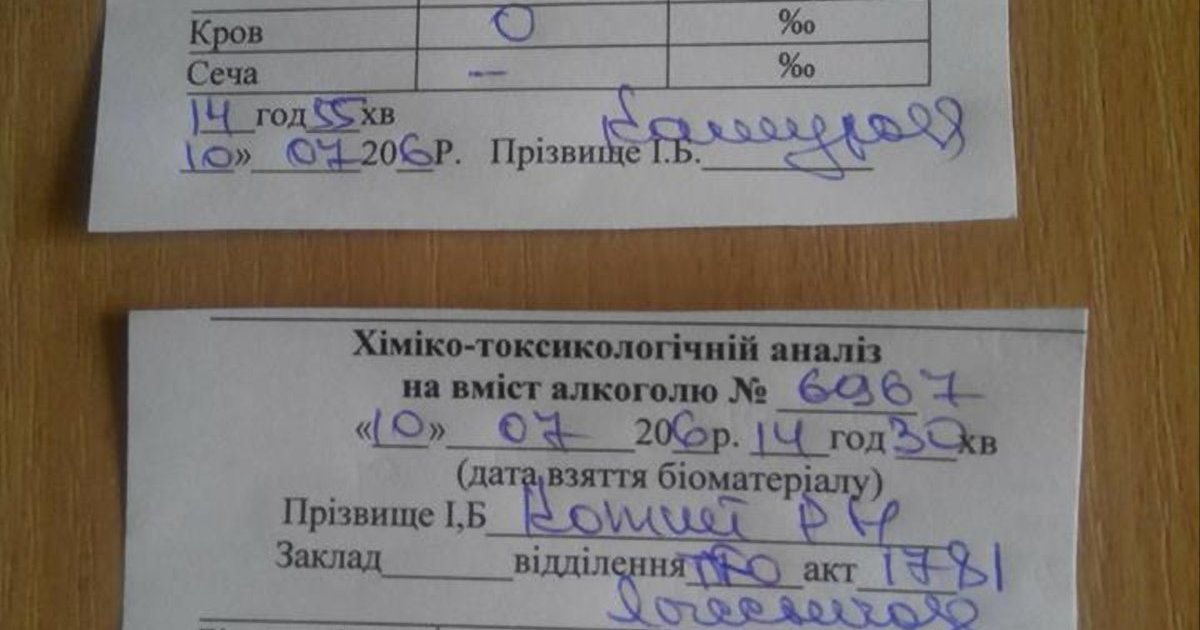 Кров О ‰
Сеча — ‰
14 год 55 хв
10» 07 206Р. Прізвище І.Б.
Хіміко-токсикологічній аналіз
на вміст алкоголю № 6967
«10» 07 206р. 14 год 30 хв
(дата взяття біоматеріалу)
Прізвище І,Б
Заклад відділення акт 1781